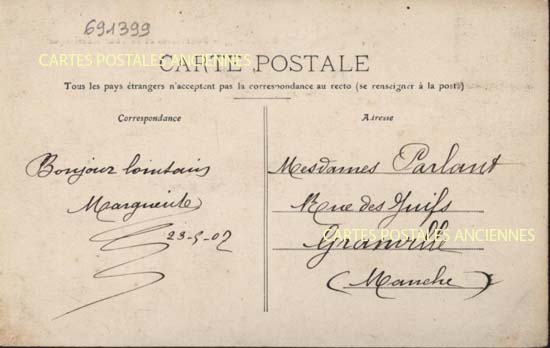 691399
CARTES POSTALES ANCIENNES
CARTE POSTALE
Tous les pays étrangers n'acceptent pas la correspondance au recto (se renseigner à la poste)
Correspondance
Bonjour lointain
Marguerite
23-5-07
Adresse
Mesdames Parlant
Rue des Juifs
Granville
CARTES POSTALES ANCIENNES
(Manche)